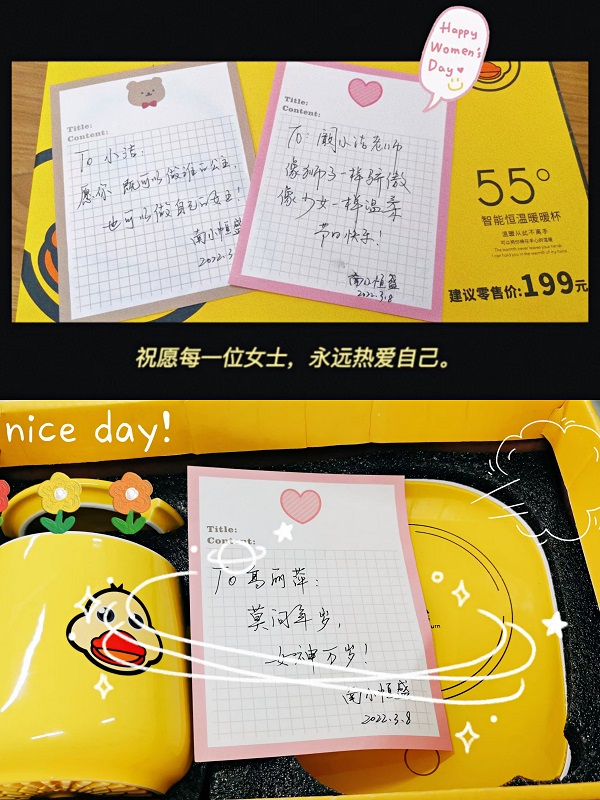 Happy
Women's
Day
Title:
Content:
To 小洁:
愿你 既可以做谁的公主,
也可以做自己的女王!
南小恒盛
2022.3.8
Title:
Content:
To: 阚小洁老师
像狮子一样骄傲
像少女一样温柔
节日快乐!
南小恒盛
2022.3.8
55°
智能恒温暖暖杯
温暖从此不离手
可以用热情在手心的温暖
The warmth never leaves your hands.
I can hold you in the warmth of my hand.
建议零售价:199元
祝愿每一位女士，永远热爱自己。
nice day!
Title:
Content:
To 高丽萍:
莫问年岁,
女神万岁!
南小恒盛
2022.3.8